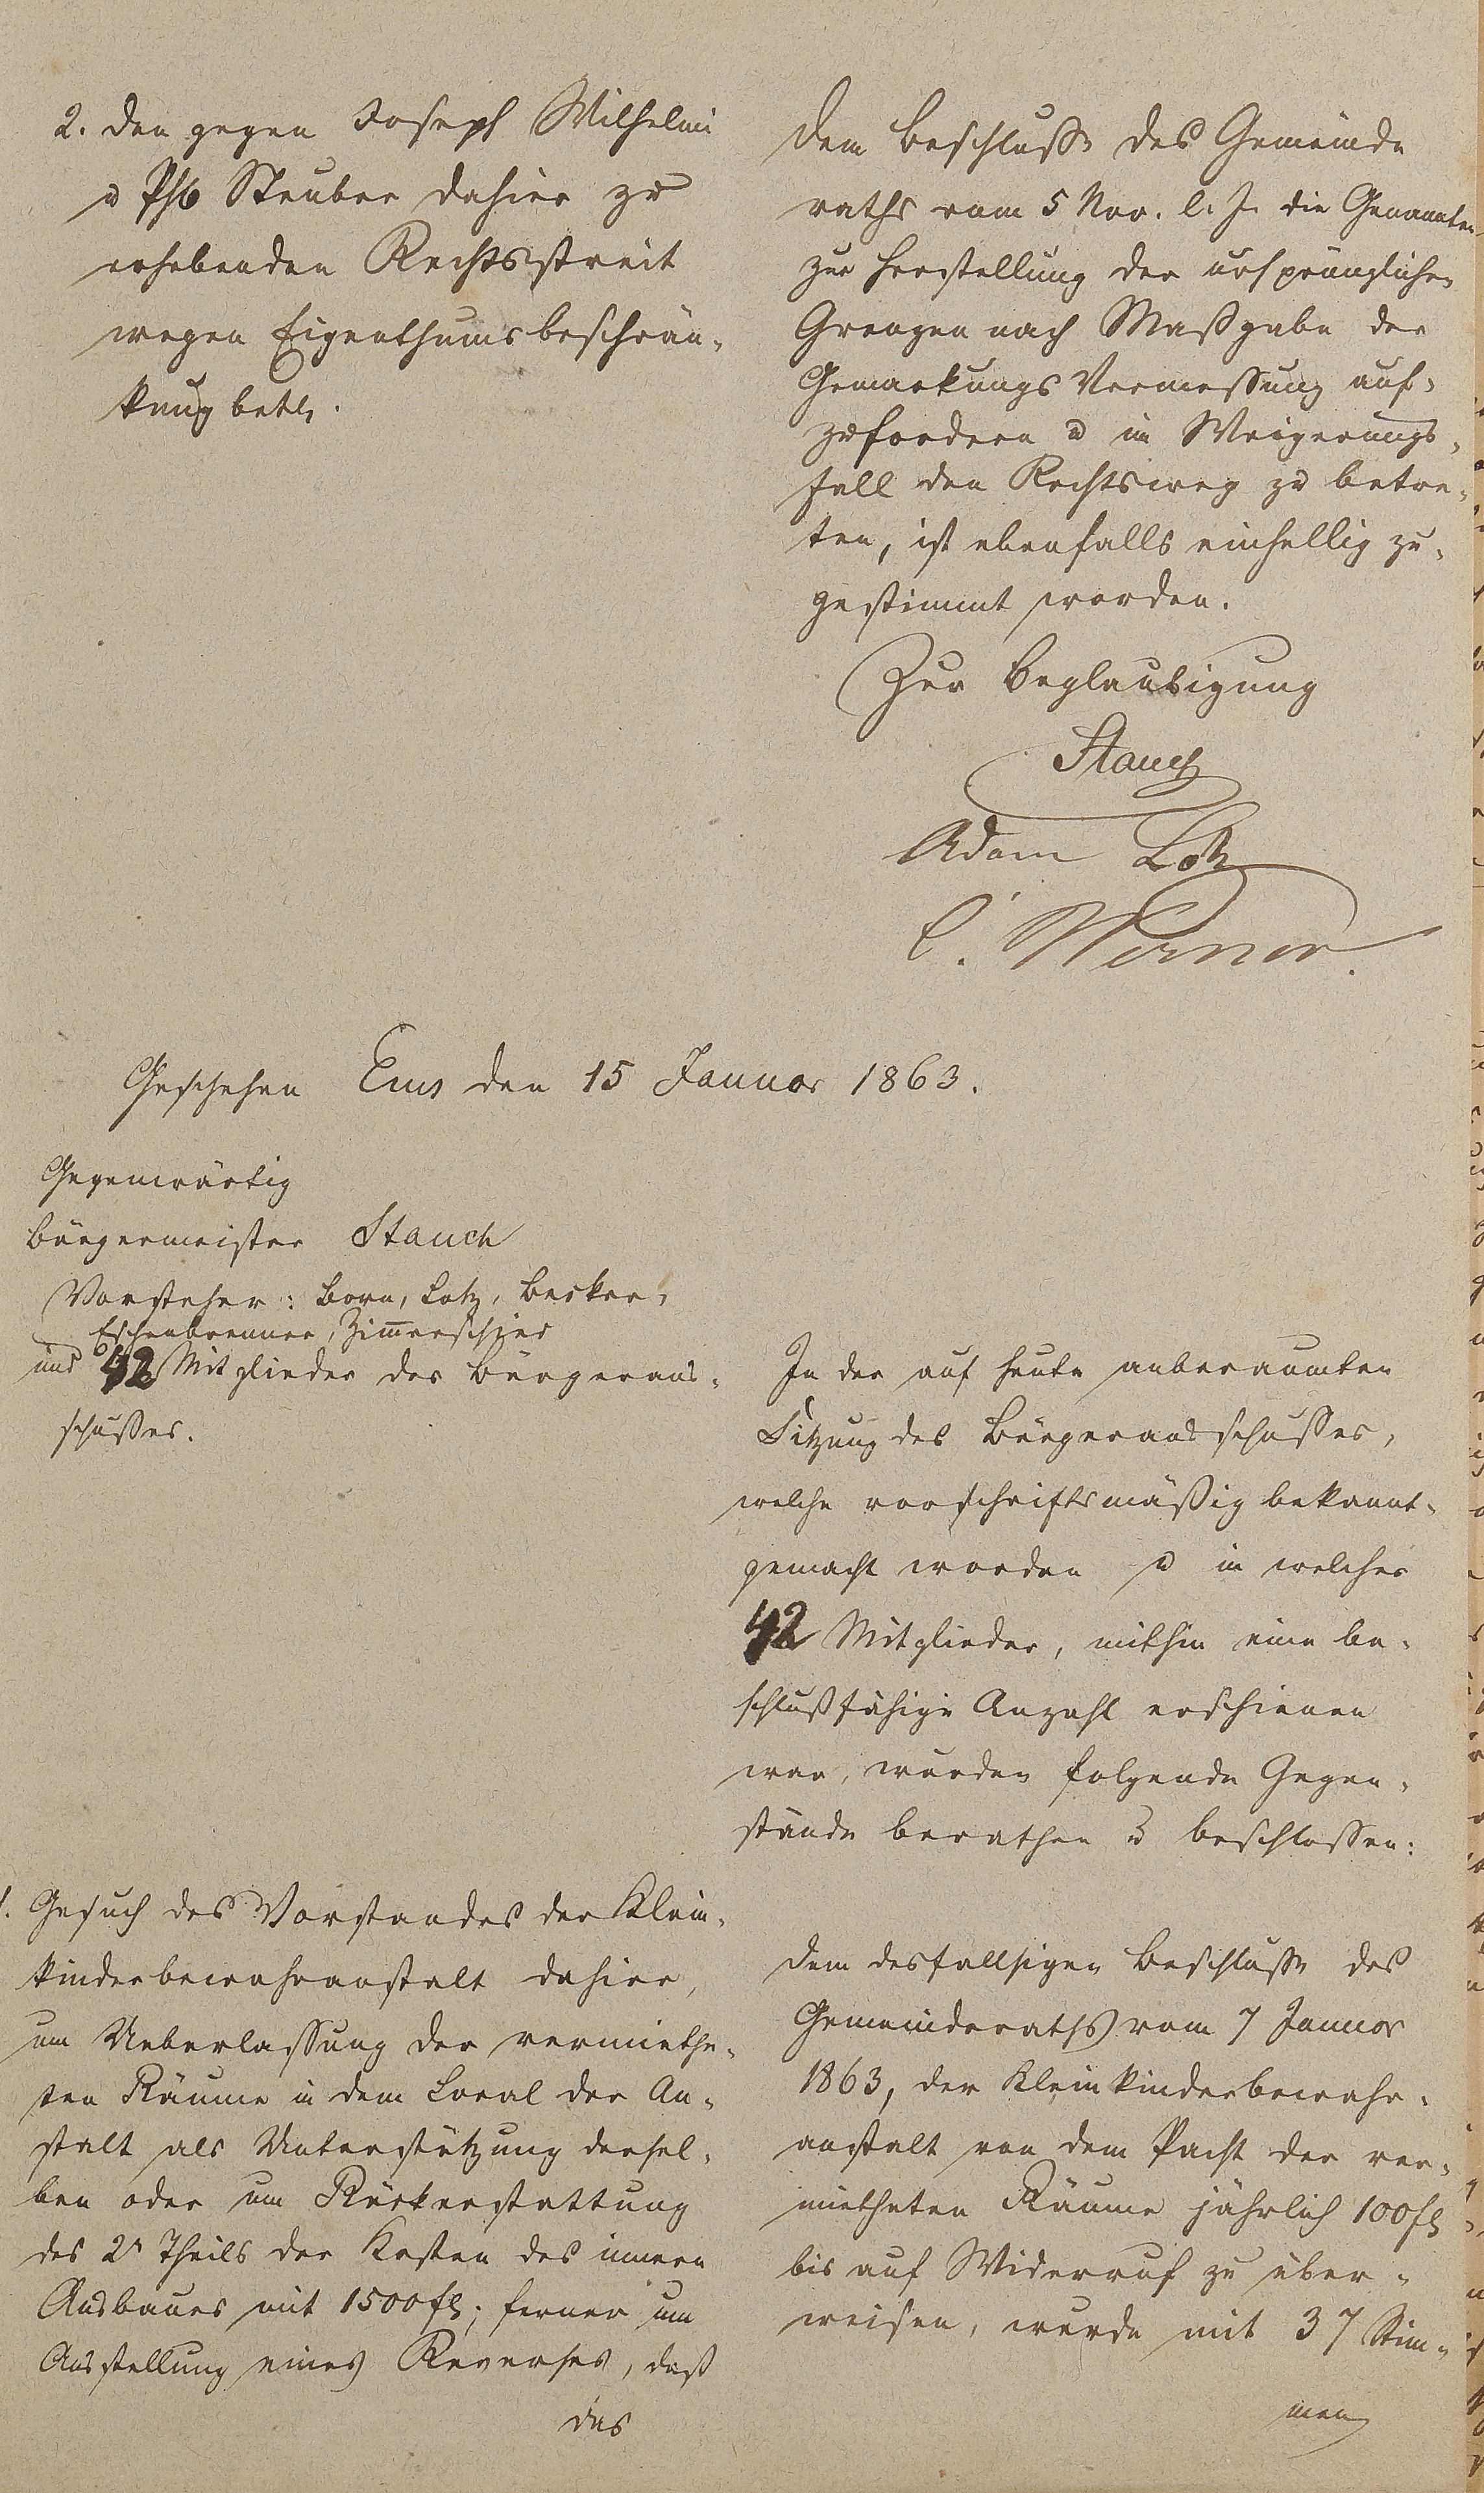 2. den gegen Joseph Wilhelmi
u Phb Steuber dahier zu
erhebenden Rechtsstreit
wegen Eigenthumsbeschrän-
kung betr.
dem Beschlusse des Gemeinde
raths vom 5 Nov. l. J. die Genannten
zur Herstellung der ursprünglichen
Grenzen nach Maßgabe der
Gemarkungs Vermessung auf-
zufordern u im Weigerungs-
fall den Rechtsweg zu betre-
ten, ist ebenfalls einhellig zu-
gestimmt worden.
Zur Beglaubigung
Stauch
Adam Lotz
C. Werner.
Geschehen Ems den 15 Januar 1863.
Gegenwärtig
Bürgermeister Stauch
Vorsteher: Born, Lotz, Becker,
Eschenbrenner, Zimerschied
und 42 Mitglieder des Bürgeraus-
schusses.
In der auf heute anberaumten
Sitzung des Bürgerausschusses,
welche vorschriftsmäßig bekannt-
gemacht worden u in welcher
42 Mitglieder, mithin eine be-
schlußfähige Anzahl erschienen
war, wurden folgende Gegen-
stände berathen u beschlossen:
1. Gesuch des Vorstandes der Klein-
kinderbewahranstalt dahier,
um Ueberlassung der vermiethe-
ten Räume in dem Local der An-
stalt als Unterstützung dersel-
ben oder um Rückerstattung
des 2n Theils der Kosten des innern
Ausbaues mit 1500 fl; ferner um
Ausstellung eines Reverses, daß
das
dem desfallsigen Beschlusse des
Gemeinderaths vom 7 Januar
1863, der Kleinkinderbewahr-
anstalt von dem Pacht der ver-
mietheten Räume jährlich 100 fl
bis auf Widerruf zu über-
weisen, wurde mit 37 Stim-
men